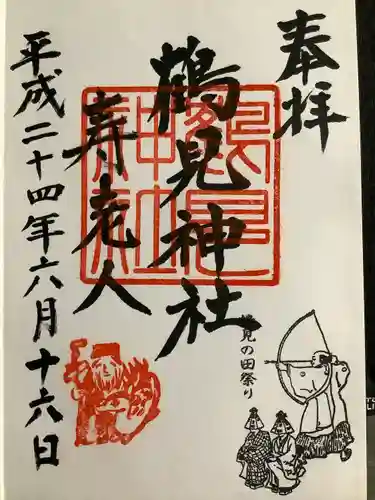 奉拝
鶴見神社
寿老人
平成二十四年六月十六日
鶴見神社
鶴見の田祭り